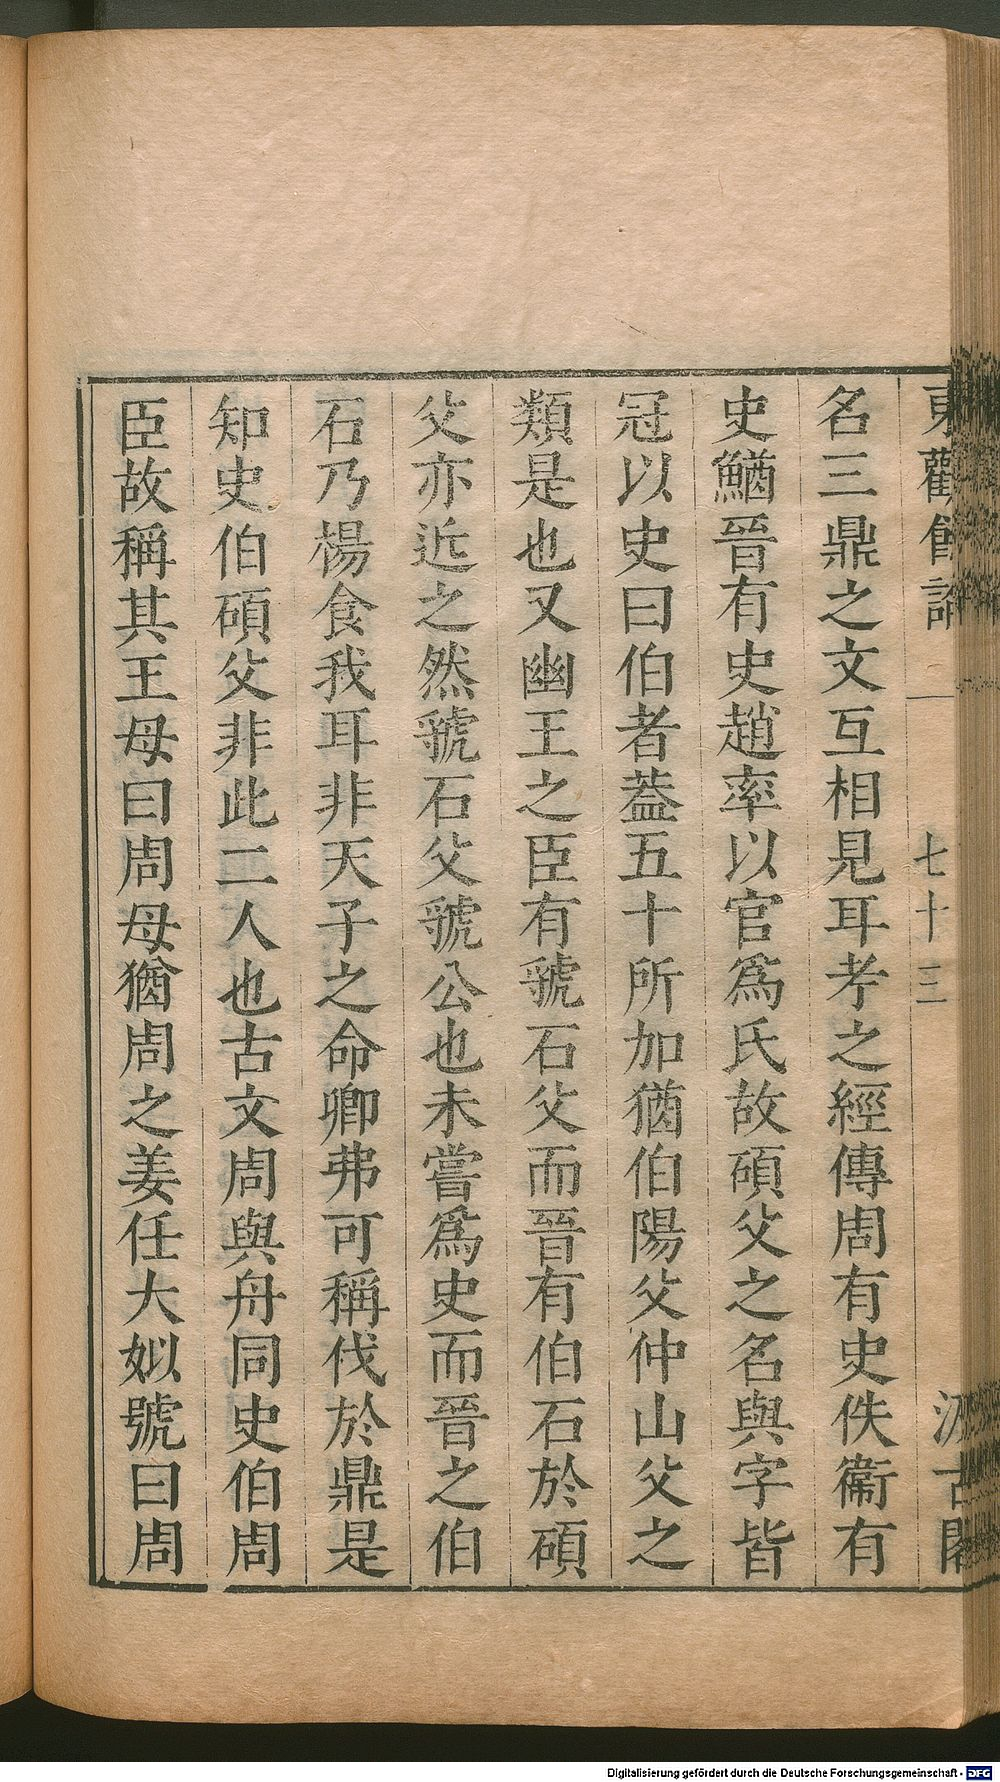 東觀餘論 一 七十三 汲古閣
名三鼎之文互相見耳考之經傳周有史佚衞有
史鰌晉有史趙率以官爲氏故碩父之名與字皆
冠以史曰伯者葢五十所加猶伯陽父仲山父之
類是也又幽王之臣有虢石父而晉有伯石於碩
父亦近之然虢石父虢公也未嘗爲史而晉之伯
石乃楊食我耳非天子之命卿弗可稱伐於鼎是
知史伯碩父非此二人也古文周與舟同史伯周
臣故稱其王母曰周母猶周之姜任大姒號曰周
Digitalisierung gefördert durch die Deutsche Forschungsgemeinschaft - DFG